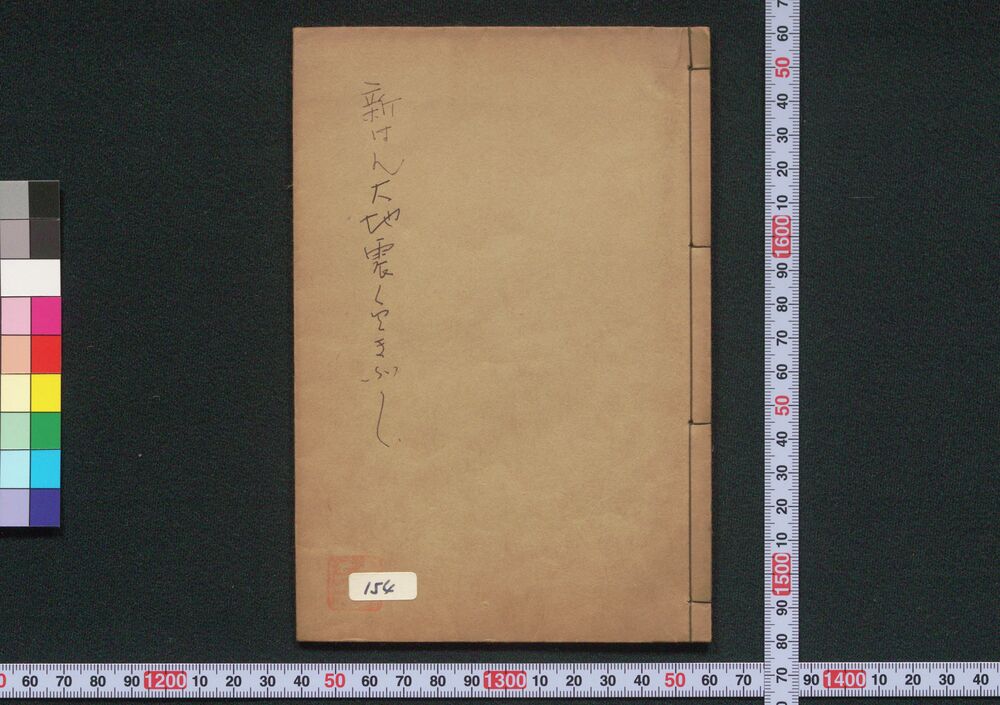 新はん大地震くどきぶし
154
60 50 40 30 20 10 1600 90 80 70 60 50 40 30 20 10 1500 90 80 70
60 70 80 90 1200 10 20 30 40 50 60 70 80 90 1300 10 20 30 40 50 60 70 90 1400 10 20 30 40